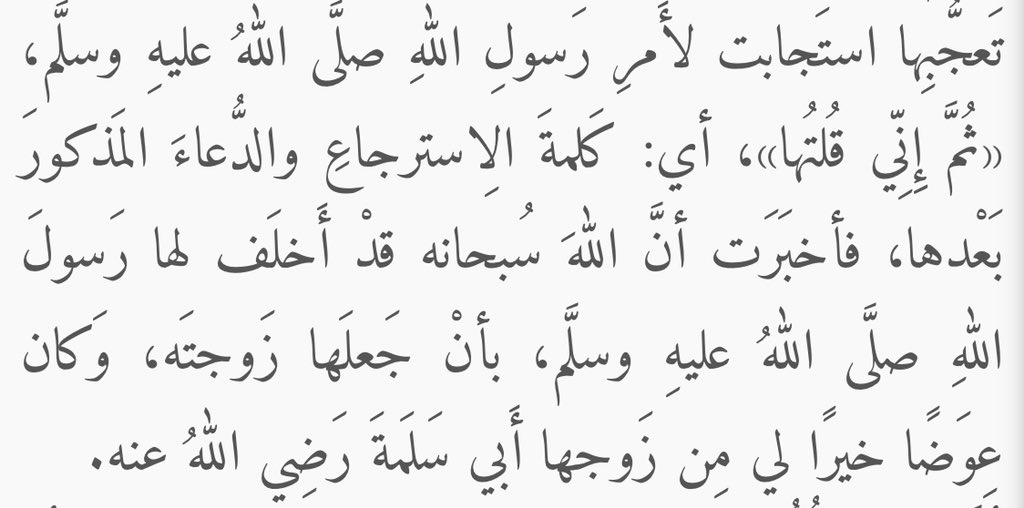 تَعجُّبِها استَجابت لأَمرِ رَسولِ اللهِ صلَّى اللهُ عليهِ وسلَّم،
«ثُمَّ إِنِّي قُلتُها»، أي: كَلمةَ الِاسترجاعِ والدُّعاءَ المَذكورَ
بَعْدها، فأخبَرَت أنَّ اللهَ سُبحانه قدْ أَخلَف لها رَسولَ
اللهِ صلَّى اللهُ عليهِ وسلَّم، بأنْ جَعلَها زَوجتَه، وَكان
عوَضًا خيرًا لي مِن زَوجها أَبي سَلَمَةَ رَضِي اللهُ عنه.